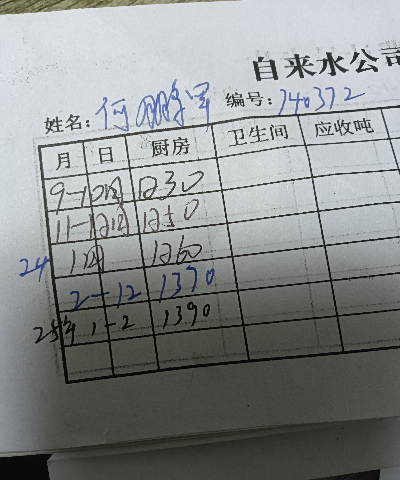 自来水公司
姓名: 何鹏军 编号: 740372
月 日 厨房 卫生间 应收吨
9-10月 1230
11-12月 1250
24 1月 1260
2-12 1370
25年 1-2 1390